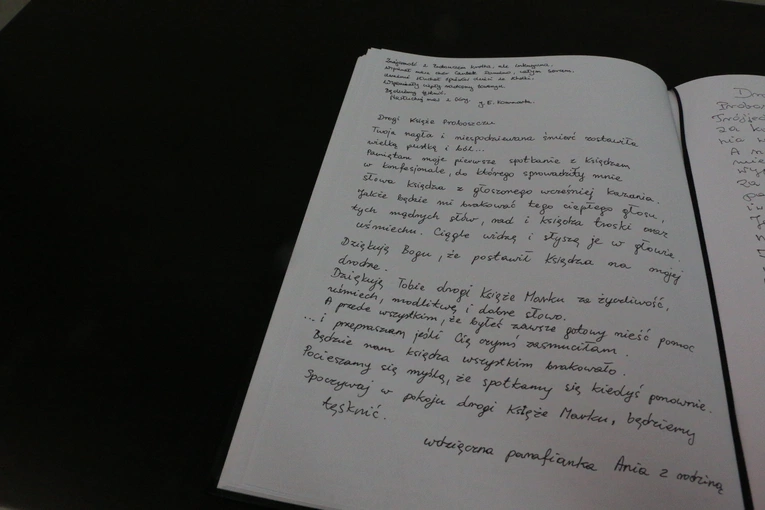 Znajomość z Proboszczem krótka, ale intensywna.
Wspierał nasz chór Cantate Domino, całym sercem.
Będziemy tęsknić.
Drogi Księże Proboszczu
Twoja nagła i niespodziewana śmierć zostawiła
wielką pustkę i ból...
Pamiętam moje pierwsze spotkanie z Księdzem
w konfesjonale, do którego sprowadziły mnie
słowa księdza z głoszonego wcześniej kazania.
Jakże będzie mi brakować tego ciepłego głosu,
tych mądrych słów, rad i księdza troski oraz
uśmiechu. Ciągle widzę i słyszę je w głowie.
Dziękuję Bogu, że postawił Księdza na mojej
drodze.
Dziękuję Tobie drogi Księże Marku za życzliwość,
uśmiech, modlitwę i dobre słowo.
A przede wszystkim, że byłeś zawsze gotowy nieść pomoc
... i przepraszam jeśli Cię czymś zasmuciłam.
Będzie nam księdza wszystkim brakowało.
Pocieszamy się myślą, że spotkamy się kiedyś ponownie.
Spoczywaj w pokoju drogi Księże Marku, będziemy
tęsknić.
wdzięczna parafianka Ania z rodziną